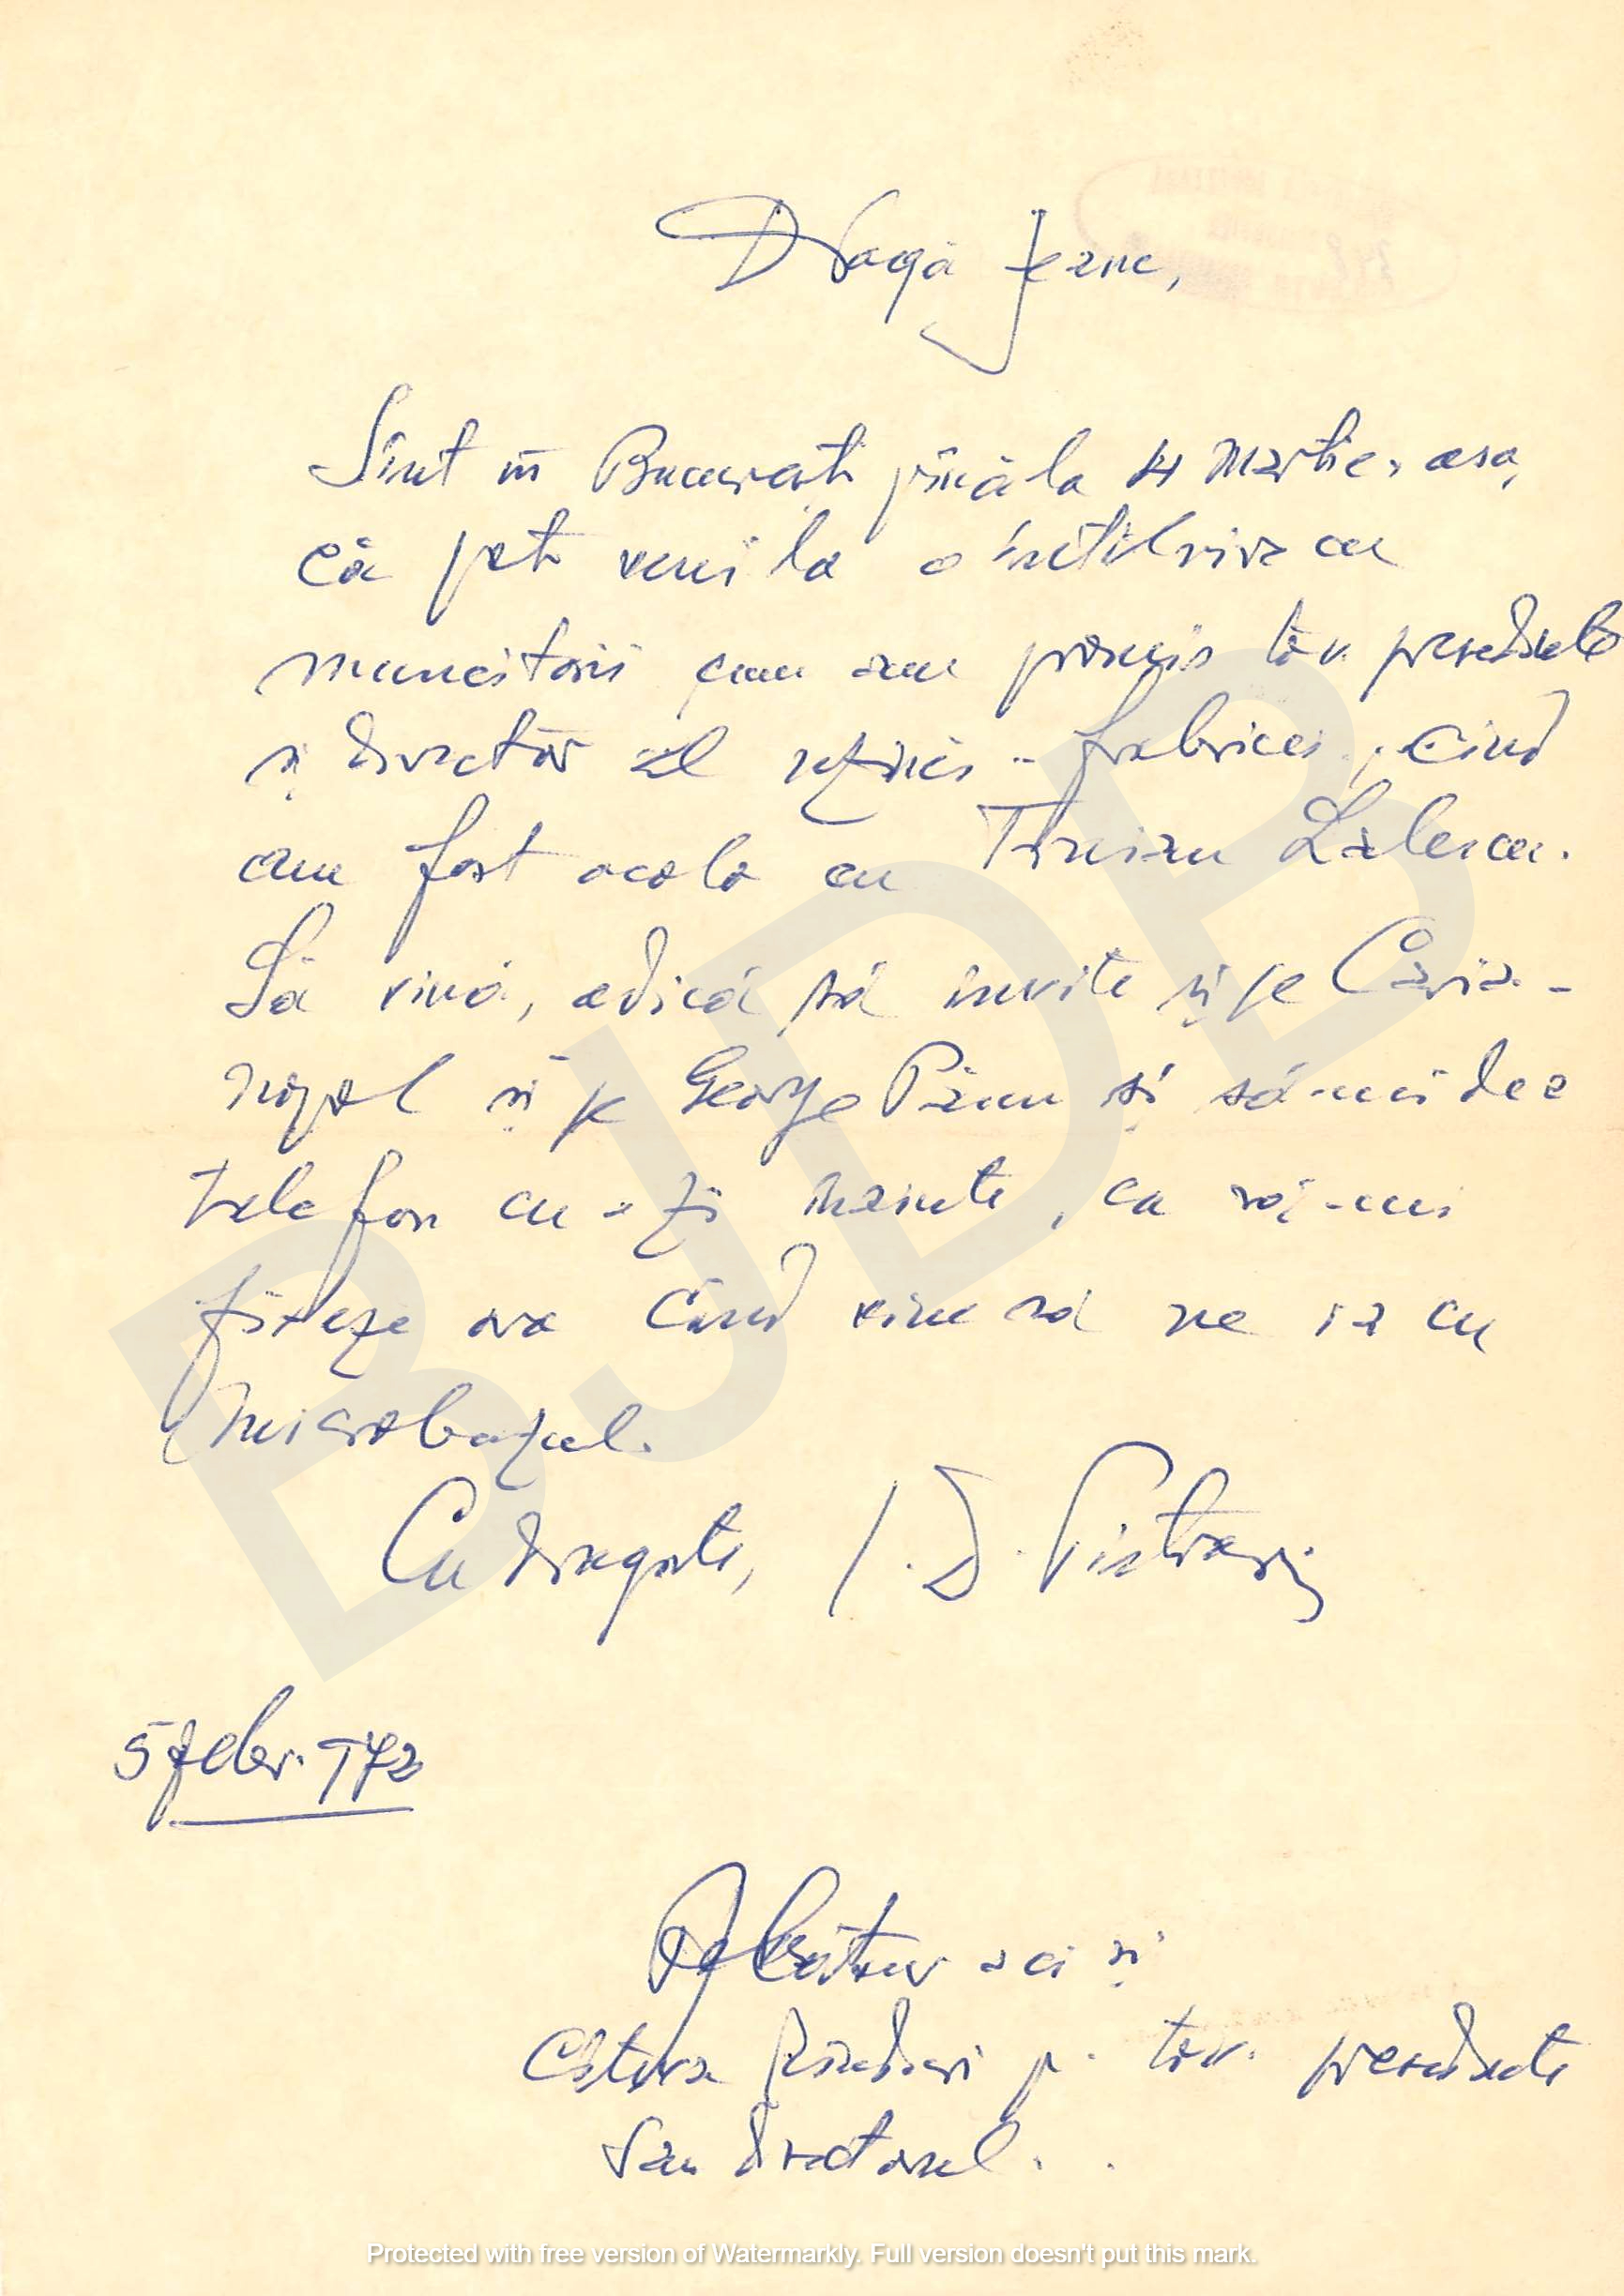 Dragă Jene,
Sînt în București pînă la 4 Martie, așa,
că pot veni la o întîlnire cu
muncitorii cum am promis tov. președinte
și director al uzinei - fabricei, cînd
am fost acolo cu Traian Lalescu.
Să vină, adică să invite și pe Caria-
nopol și pe George Pănu și să-mi dea
telefon cu o zi înainte, ca să-mi
fixeze ora cînd vine să ne ia cu
microbuzul.
Cu dragoste, I. D. Pietrari
5 febr. 972
Alătur aci și
cîteva rînduri p. tov. președinte
sau directorul.
BJDB
Protected with free version of Watermarkly. Full version doesn't put this mark.